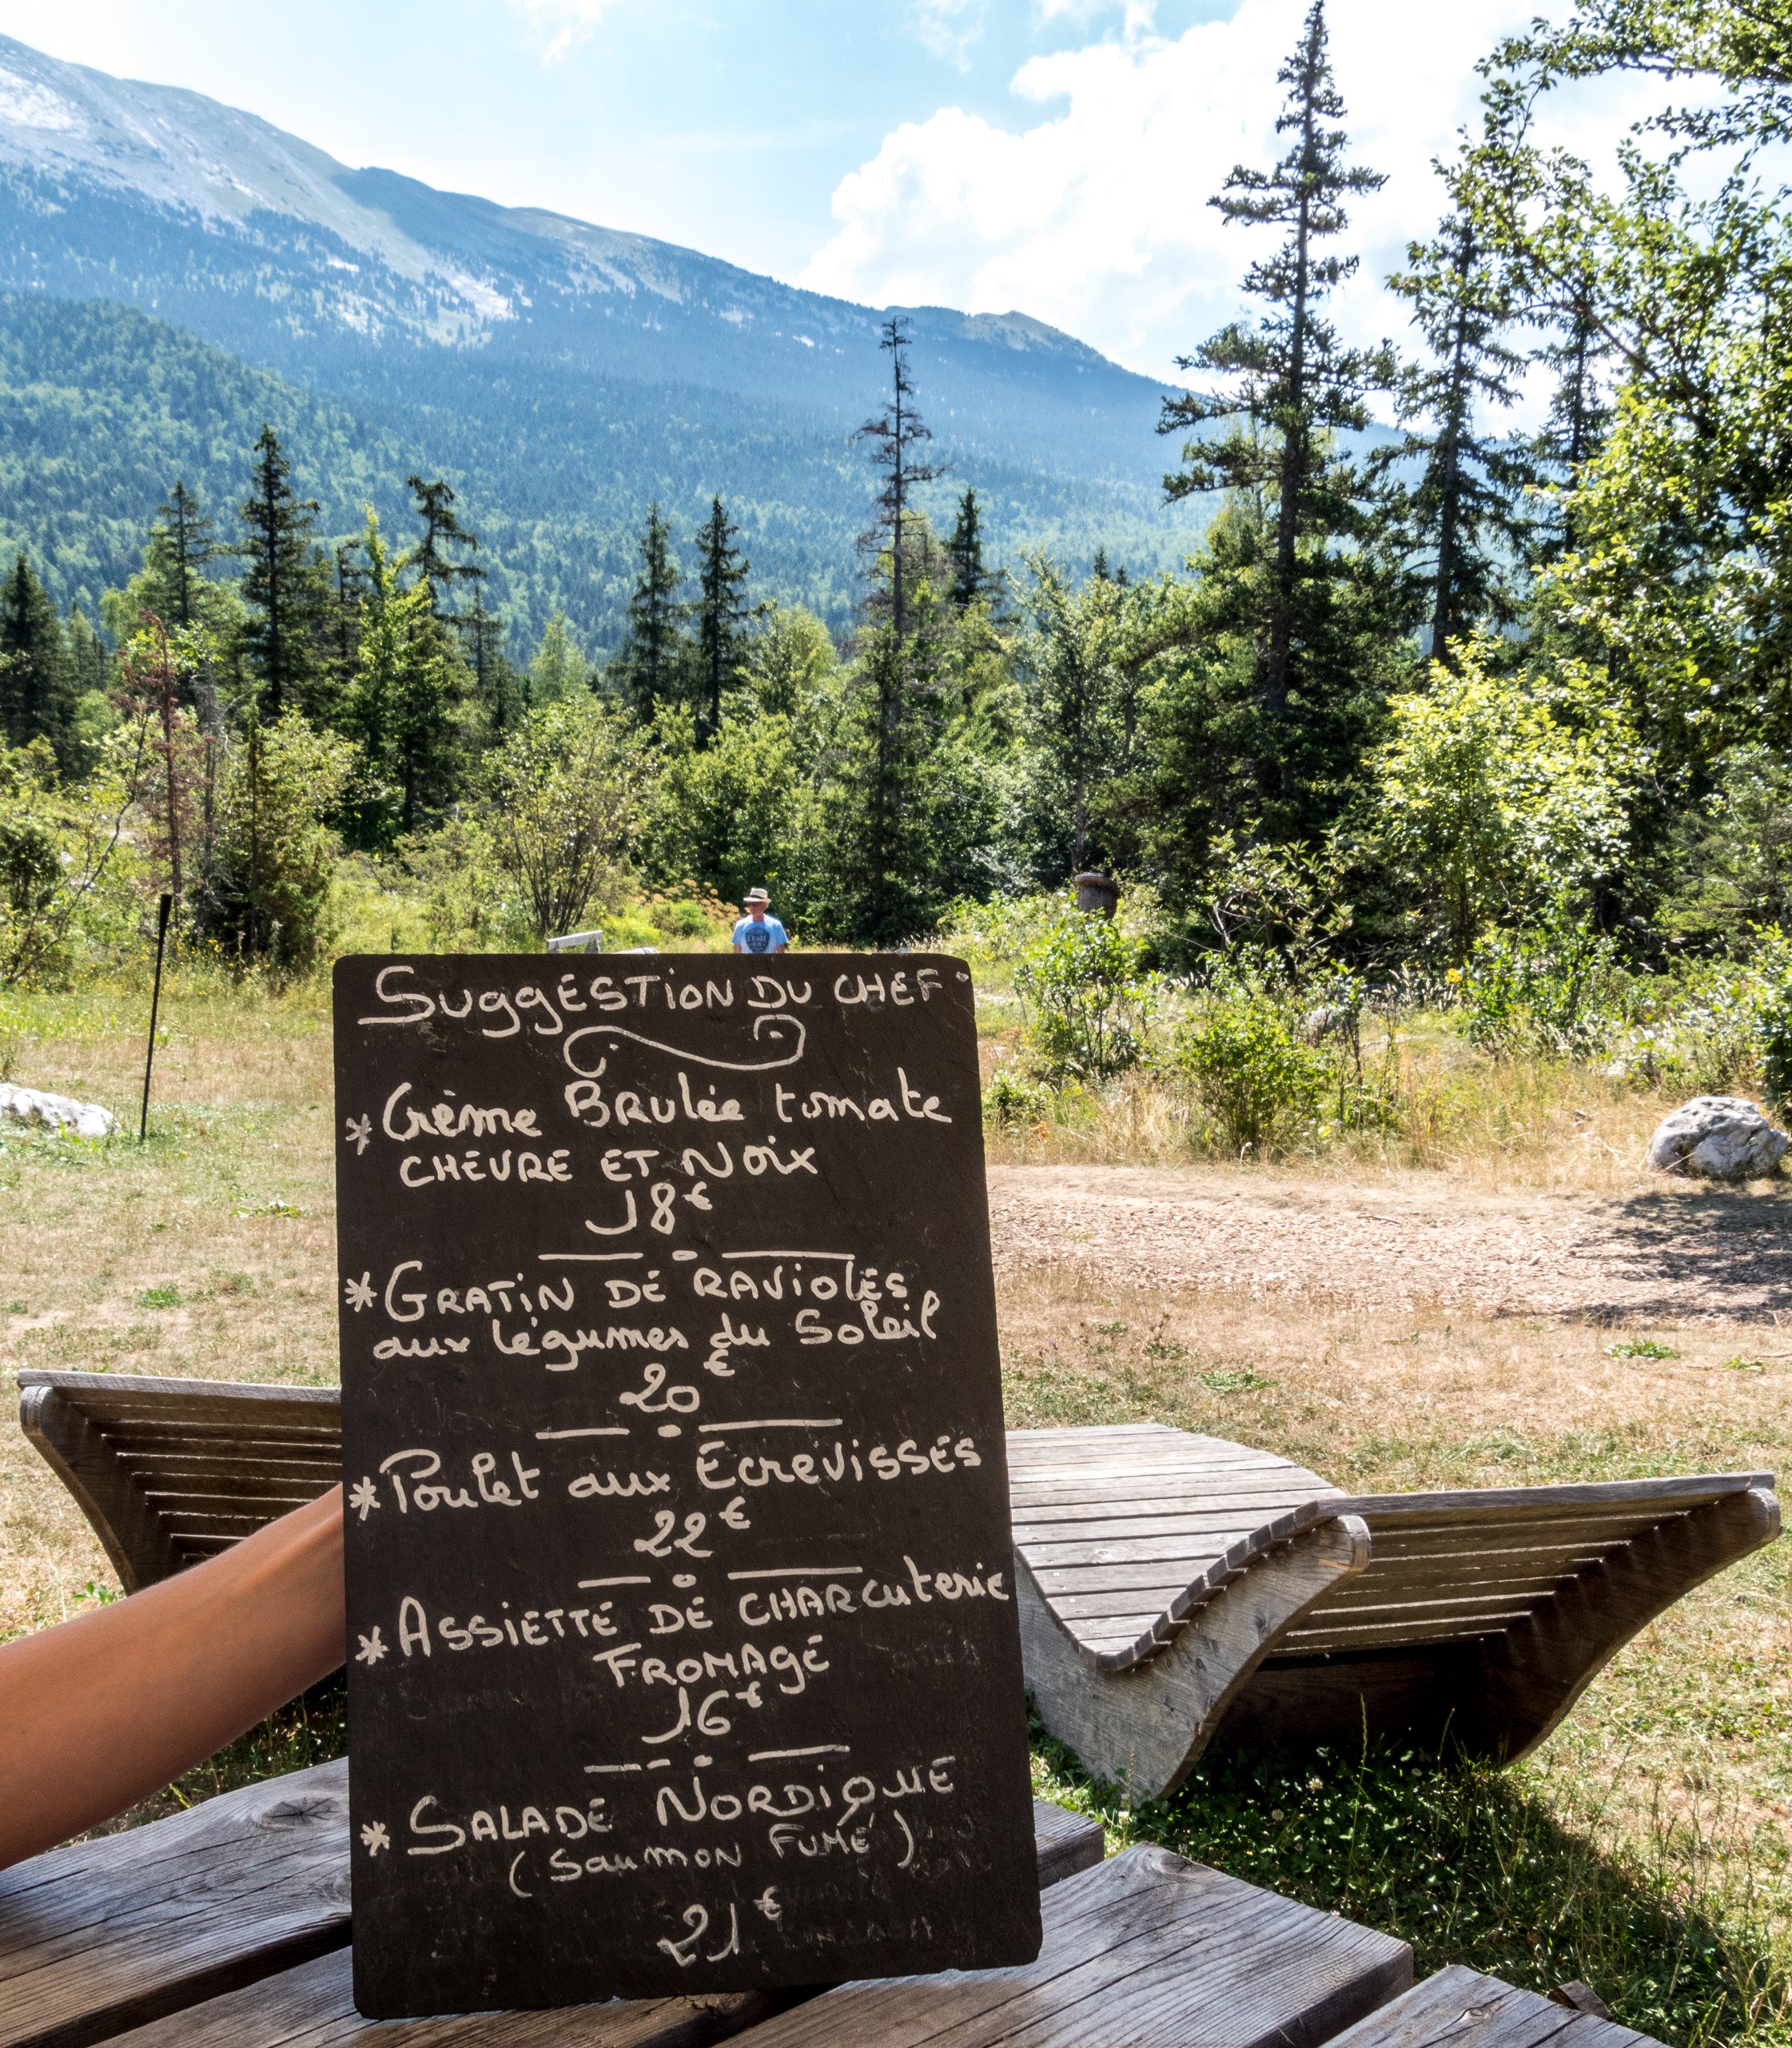 SUGGESTION DU CHEF
* Crème BRulée tomate
CHEVRE ET NOIX
18€
* GRATIN DE RAVIOLES
aux légumes du Soleil
20€
* Poulet aux Ecrevisses
22€
* ASSIETTE DE CHARCuterie
FROMAGE
16€
* SALADE NORDIQUE
(Saumon Fumé)
21€